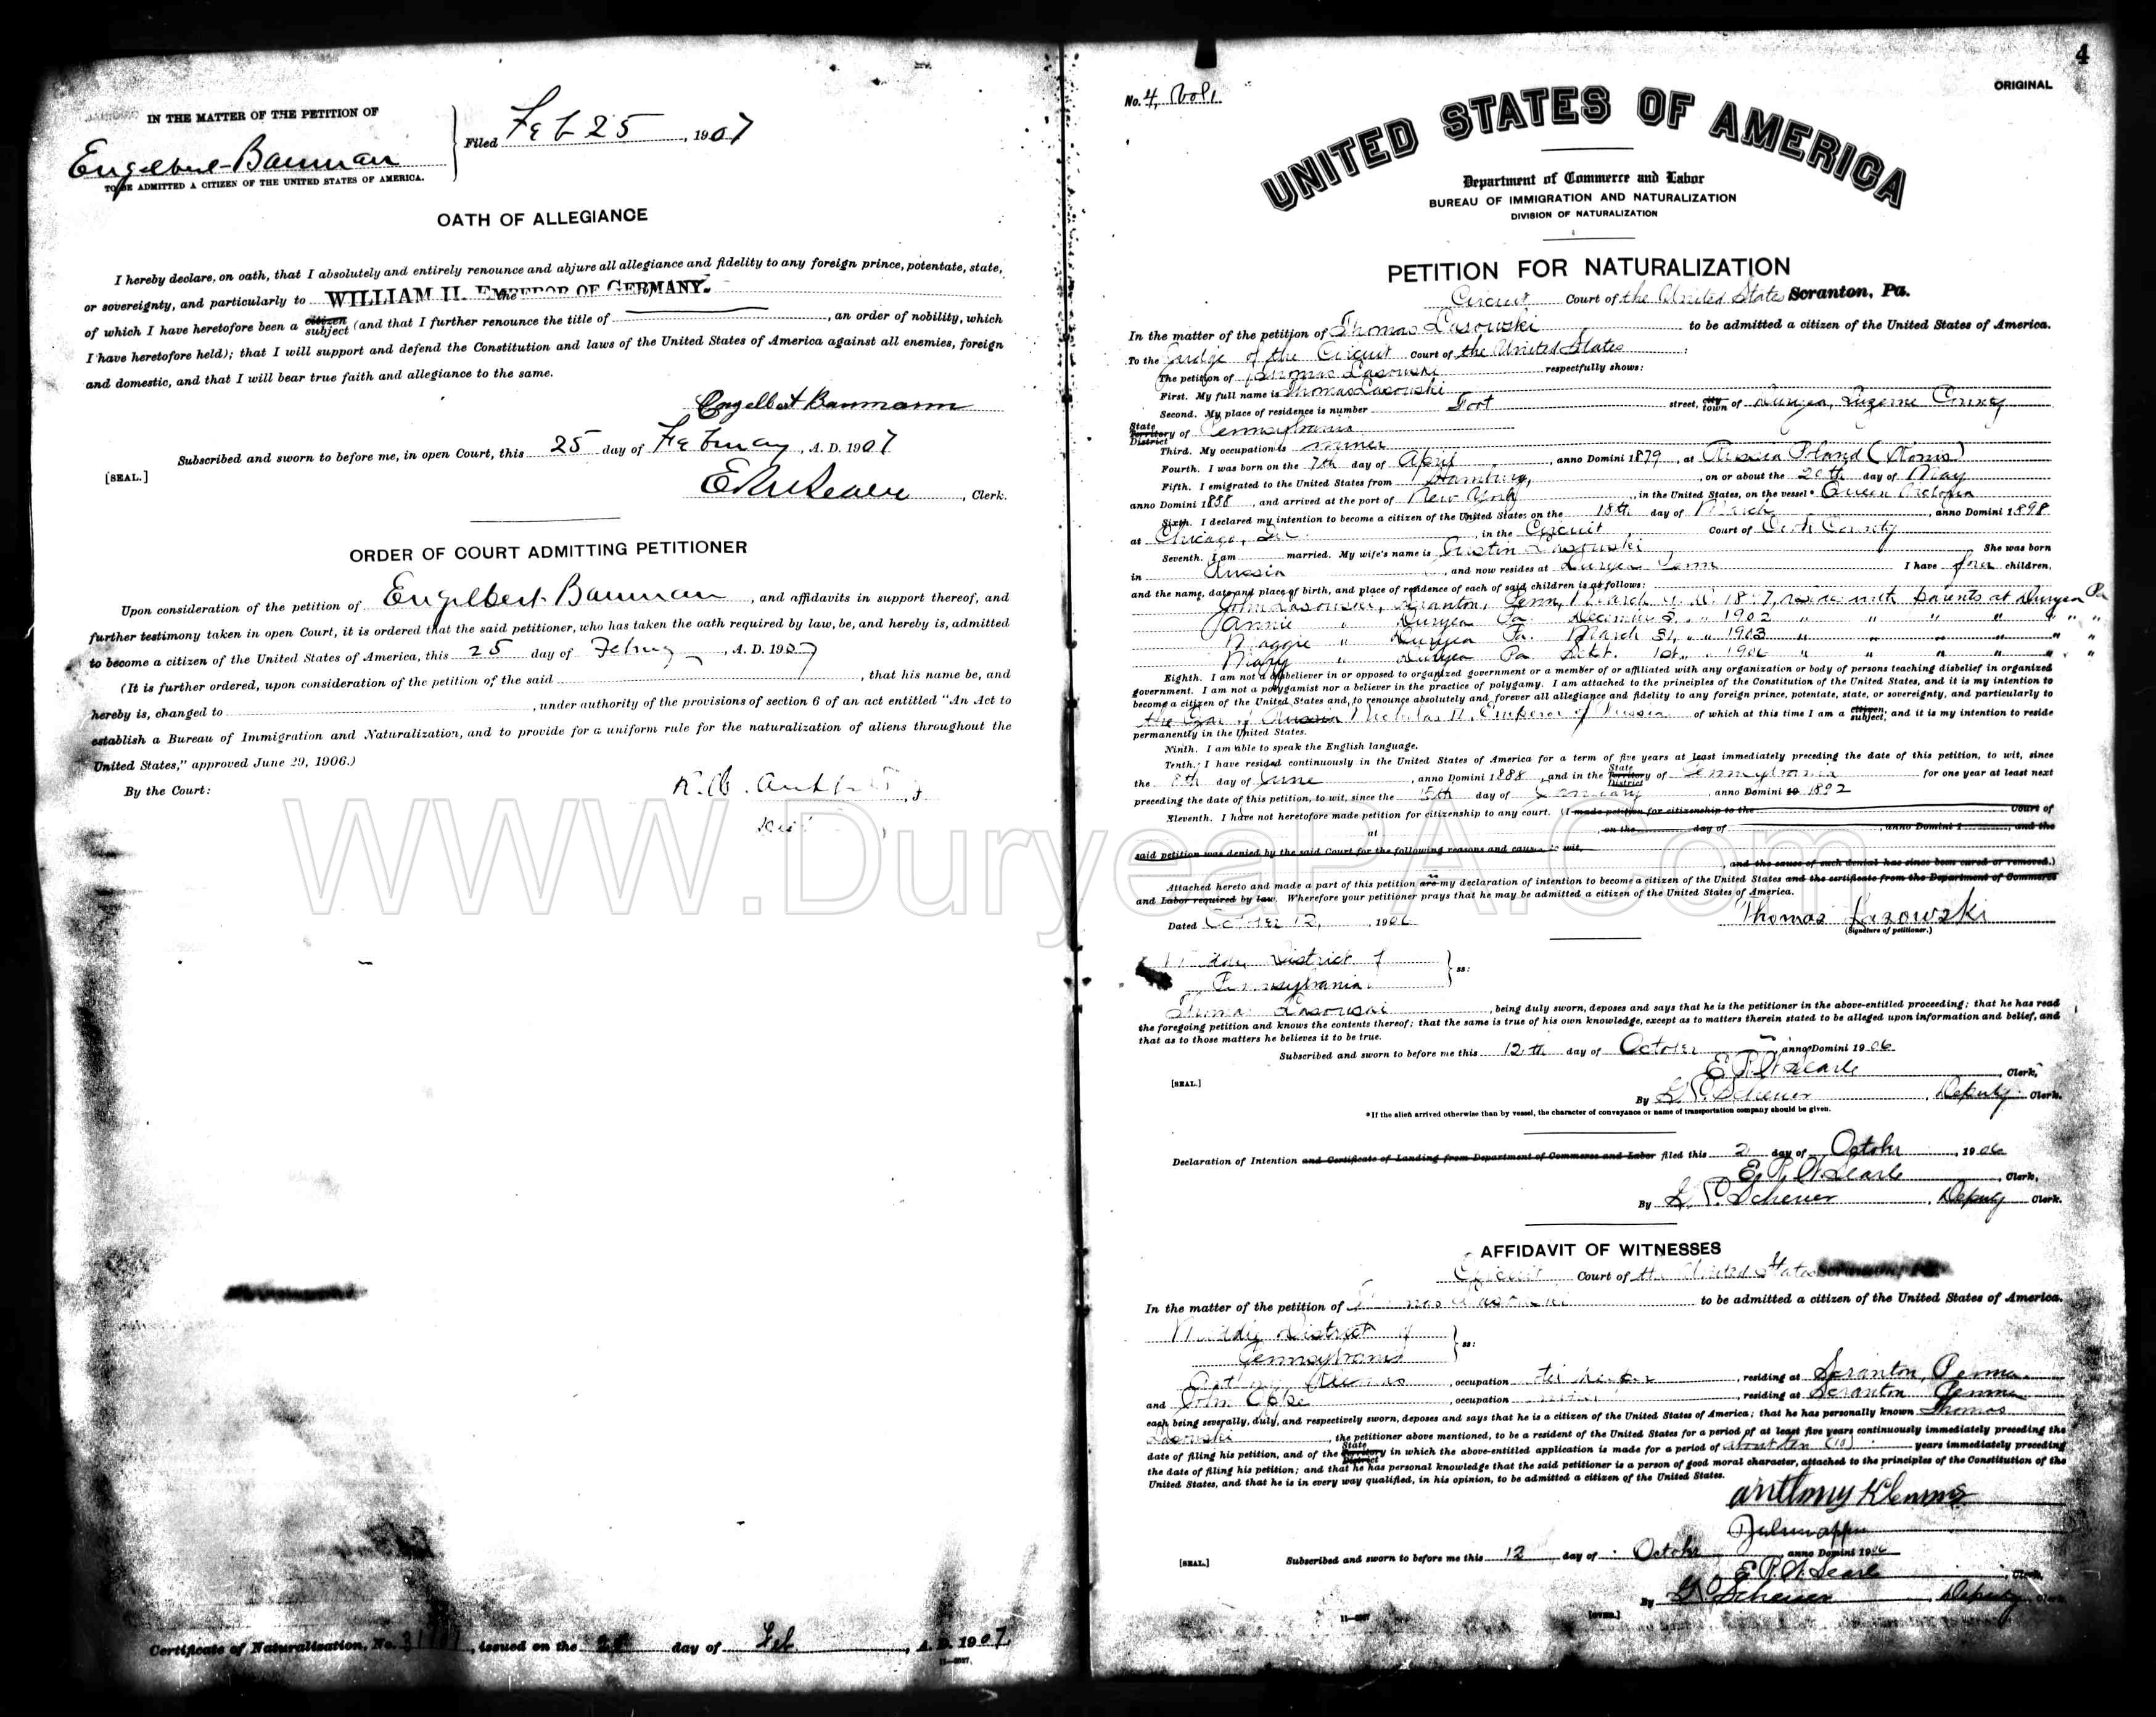 IN THE MATTER OF THE PETITION OF
Engelbert Bauman
TO BE ADMITTED A CITIZEN OF THE UNITED STATES OF AMERICA.
Filed Feb 25, 1907
OATH OF ALLEGIANCE
I hereby declare, on oath, that I absolutely and entirely renounce and abjure all allegiance and fidelity to any foreign prince, potentate, state,
or sovereignty, and particularly to WILLIAM II. EMPEROR OF GERMANY.
of which I have heretofore been a citizen subject (and that I further renounce the title of , an order of nobility, which
I have heretofore held); that I will support and defend the Constitution and laws of the United States of America against all enemies, foreign
and domestic, and that I will bear true faith and allegiance to the same.
Engelbert Baumann
Subscribed and sworn to before me, in open Court, this 25 day of February, A. D. 1907
[SEAL.]
E R W Searle, Clerk.
ORDER OF COURT ADMITTING PETITIONER
Upon consideration of the petition of Engelbert Bauman, and affidavits in support thereof, and
further testimony taken in open Court, it is ordered that the said petitioner, who has taken the oath required by law, be, and hereby is, admitted
to become a citizen of the United States of America, this 25 day of Feb'y, A. D. 1907
(It is further ordered, upon consideration of the petition of the said , that his name be, and
hereby is, changed to , under authority of the provisions of section 6 of an act entitled "An Act to
establish a Bureau of Immigration and Naturalization, and to provide for a uniform rule for the naturalization of aliens throughout the
United States," approved June 29, 1906.)
By the Court:
Certificate of Naturalization, No. , issued on the day of Feb., A. D. 1907
11—3527
4
No. 4, Vol 1
ORIGINAL
UNITED STATES OF AMERICA
Department of Commerce and Labor
BUREAU OF IMMIGRATION AND NATURALIZATION
DIVISION OF NATURALIZATION
PETITION FOR NATURALIZATION
Circuit Court of the United States Scranton, Pa.
In the matter of the petition of Thomas Lasowski to be admitted a citizen of the United States of America.
To the Judge of the Circuit Court of the United States:
The petition of Thomas Lasowski respectfully shows:
First. My full name is Thomas Lasowski
Second. My place of residence is number Foot street, city town of Duryea, Luzerne County
State Territory District of Pennsylvania
Third. My occupation is miner
Fourth. I was born on the 7th day of April, anno Domini 1879, at Russia Poland
Fifth. I emigrated to the United States from Hamburg, on or about the 20th day of May
anno Domini 1888, and arrived at the port of New York, in the United States, on the vessel* Queen Victoria
Sixth. I declared my intention to become a citizen of the United States on the 18th day of March, anno Domini 1898
at Chicago, Ill. in the Circuit Court of Cook County
Seventh. I am married. My wife's name is Lasowski She was born
in Russia, and now resides at Duryea Penn I have four children,
and the name, date and place of birth, and place of residence of each of said children is as follows:
John Lasowski, Scranton, Penn, reside with parents at Duryea Pa
Annie " Duryea Pa. December 3, " 1902 " " " " " "
Maggie " Duryea Pa. March 31, " " 1903 " " " " " "
Mary " Duryea Pa Sept. 1st, " 1906 " " " " " "
Eighth. I am not a disbeliever in or opposed to organized government or a member of or affiliated with any organization or body of persons teaching disbelief in organized
government. I am not a polygamist nor a believer in the practice of polygamy. I am attached to the principles of the Constitution of the United States, and it is my intention to
become a citizen of the United States and to renounce absolutely and forever all allegiance and fidelity to any foreign prince, potentate, state, or sovereignty, and particularly to
the Czar of Russia Nicholas II Emperor of Russia of which at this time I am a citizen subject; and it is my intention to reside
permanently in the United States.
Ninth. I am able to speak the English language.
Tenth. I have resided continuously in the United States of America for a term of five years at least immediately preceding the date of this petition, to wit, since
the 8th day of June, anno Domini 1888, and in the State Territory District of Pennsylvania for one year at least next
preceding the date of this petition, to wit, since the 15th day of January, anno Domini 1892
Eleventh. I have not heretofore made petition for citizenship to any court. (I made petition for citizenship to the Court of
at , on the day of , anno Domini 1 , and the
said petition was denied by the said Court for the following reasons and causes, to wit,
, and the cause of such denial has since been cured or removed.)
Attached hereto and made a part of this petition are is my declaration of intention to become a citizen of the United States and the certificate from the Department of Commerce
and Labor required by law. Wherefore your petitioner prays that he may be admitted a citizen of the United States of America.
Dated October 12, 1906
Thomas Lasowski
(Signature of petitioner.)
Middle District of
Pennsylvania
ss:
Thomas Lasowski, being duly sworn, deposes and says that he is the petitioner in the above-entitled proceeding; that he has read
the foregoing petition and knows the contents thereof; that the same is true of his own knowledge, except as to matters therein stated to be alleged upon information and belief, and
that as to those matters he believes it to be true.
Subscribed and sworn to before me this 12th day of October, anno Domini 1906
E. R. W. Searle, Clerk,
[SEAL.]
By Scheuer, Deputy Clerk.
*If the alien arrived otherwise than by vessel, the character of conveyance or name of transportation company should be given.
Declaration of Intention and Certificate of Landing from Department of Commerce and Labor filed this 2 day of October, 1906
E. R. W. Searle, Clerk,
By Scheuer, Deputy Clerk.
AFFIDAVIT OF WITNESSES
Circuit Court of the United States
In the matter of the petition of Thomas Lasowski to be admitted a citizen of the United States of America.
Middle District of
Pennsylvania
ss:
Anthony , occupation , residing at Scranton, Penna.
and John , occupation miner, residing at Scranton Penna
each being severally, duly, and respectively sworn, deposes and says that he is a citizen of the United States of America; that he has personally known Thomas
Lasowski, the petitioner above mentioned, to be a resident of the United States for a period of at least five years continuously immediately preceding the
date of filing his petition, and of the State Territory District in which the above-entitled application is made for a period of about ten (10) years immediately preceding
the date of filing his petition; and that he has personal knowledge that the said petitioner is a person of good moral character, attached to the principles of the Constitution of the
United States, and that he is in every way qualified, in his opinion, to be admitted a citizen of the United States.
Anthony
[SEAL.]
Subscribed and sworn to before me this 12 day of October, anno Domini 1906
E. R. W. Searle, Clerk,
By Scheuer, Deputy Clerk.
11—3527
[OVER.]
WWW.DuryeaPA.Com